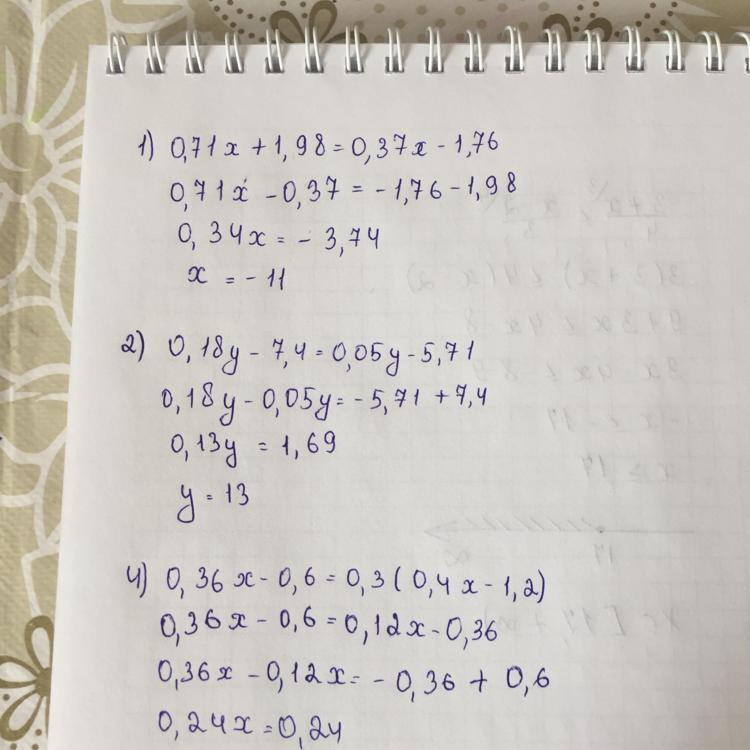 1) 0,71x + 1,98 = 0,37x - 1,76
0,71x - 0,37 = - 1,76 - 1,98
0,34x = - 3,74
x = - 11
2) 0,18y - 7,4 = 0,05y - 5,71
0,18y - 0,05y = - 5,71 + 7,4
0,13y = 1,69
y = 13
4) 0,36x - 0,6 = 0,3 ( 0,4x - 1,2)
0,36x - 0,6 = 0,12x - 0,36
0,36x - 0,12x = - 0,36 + 0,6
0,24x = 0,24